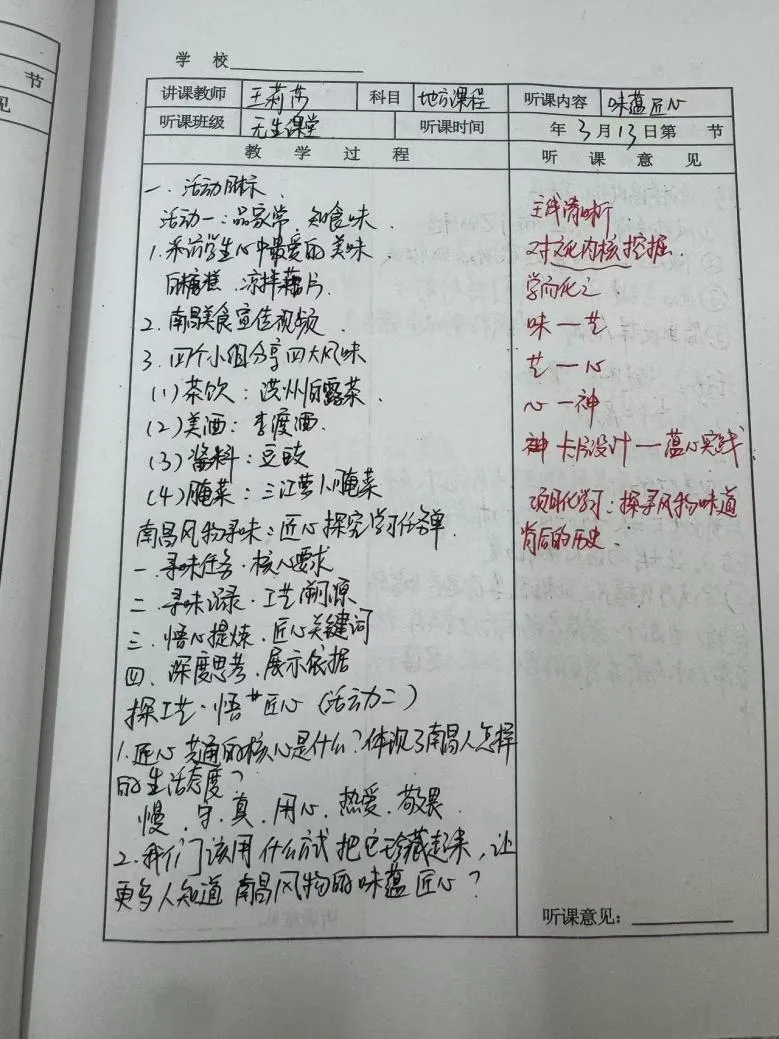 节
见
学 校
讲课教师 王莉莎 科目 地方课程 听课内容 味蕴匠心
听课班级 无生课堂 听课时间 年 3月13日第 节
教 学 过 程 听 课 意 见
一、活动展示
活动一:品家常、知食味
1.采访学生心中最爱的美味
白糖糕、凉拌藕片
2.南昌美食宣传视频
3.四个小组分享四大风味
(1)茶饮:洪州白露茶
(2)美酒:李渡酒
(3)酱料:豆豉
(4)腌菜:三江萝卜腌菜
南昌风物寻味:匠心探究学习任务单
一、寻味任务·核心要求
二、寻味记录·工艺溯源
三、悟心提炼·匠心关键词
四、深度思考·展示依据
探工艺·悟匠心(活动二)
1.匠心共通的核心是什么?体现了南昌人怎样
的生活态度?
慢、守、真、用心、热爱、敬畏
2.我们该用什么方式把它珍藏起来,让
更多人知道南昌风物的味蕴匠心?
主线清晰
对文化内核挖掘
学而化之
味一艺
艺一心
心一神
神 卡片设计一蕴心实践
项目化学习:探寻风物味道
背后的历史
听课意见: